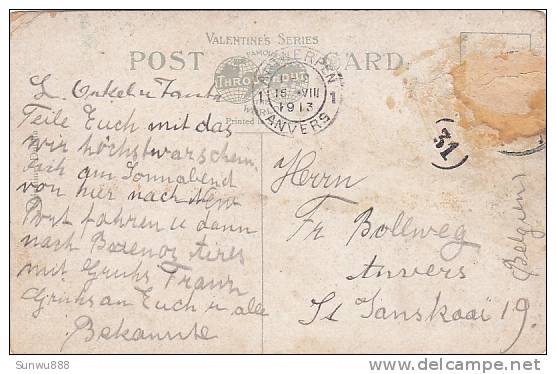 VALENTINE'S SERIES
FAMOUS
POST CARD.
THROUGHOUT
Printed
ANTWERPEN
1 15 VIII 1
1913
ANVERS
(31)
L. Onkel u Tante
Teile Euch mit das
wir höchstwarschein
lich am Sonnabend
von hier nach New
Port fahren u dann
nach Buenos Aires
mit Gruhs Franz
Gruhs an Euch u alle
Bekannte
Herrn
Fr Bollweg
Anvers
St Janskaai 19.
(Belgien)
Sunwu888
www.delcampe.net